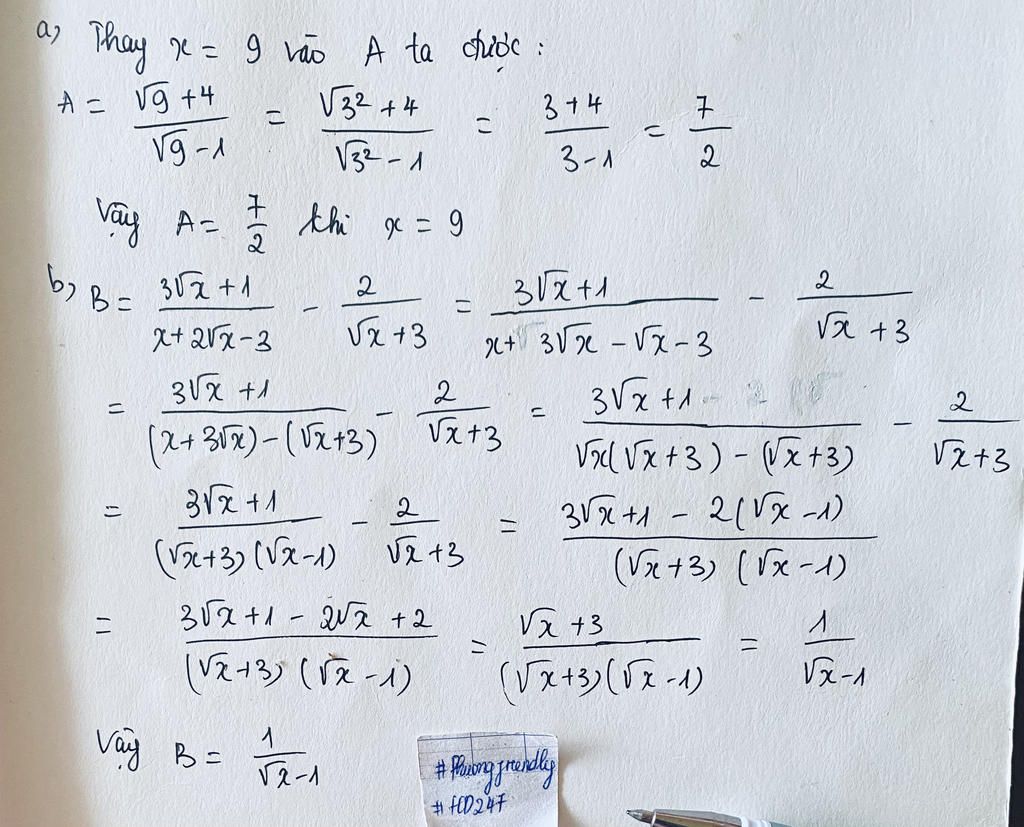 a, Thay x = 9 vào A ta được :
A = (√9 + 4)/(√9 - 1) = (√3² + 4)/(√3² - 1) = (3 + 4)/(3 - 1) = 7/2
Vậy A = 7/2 khi x = 9
b, B = (3√x + 1)/(x + 2√x - 3) - 2/(√x + 3) = (3√x + 1)/(x + 3√x - √x - 3) - 2/(√x + 3)
= (3√x + 1)/((x + 3√x) - (√x + 3)) - 2/(√x + 3) = (3√x + 1)/(√x(√x + 3) - (√x + 3)) - 2/(√x + 3)
= (3√x + 1)/((√x + 3)(√x - 1)) - 2/(√x + 3) = (3√x + 1 - 2(√x - 1))/((√x + 3)(√x - 1))
= (3√x + 1 - 2√x + 2)/((√x + 3)(√x - 1)) = (√x + 3)/((√x + 3)(√x - 1)) = 1/(√x - 1)
Vậy B = 1/(√x - 1)